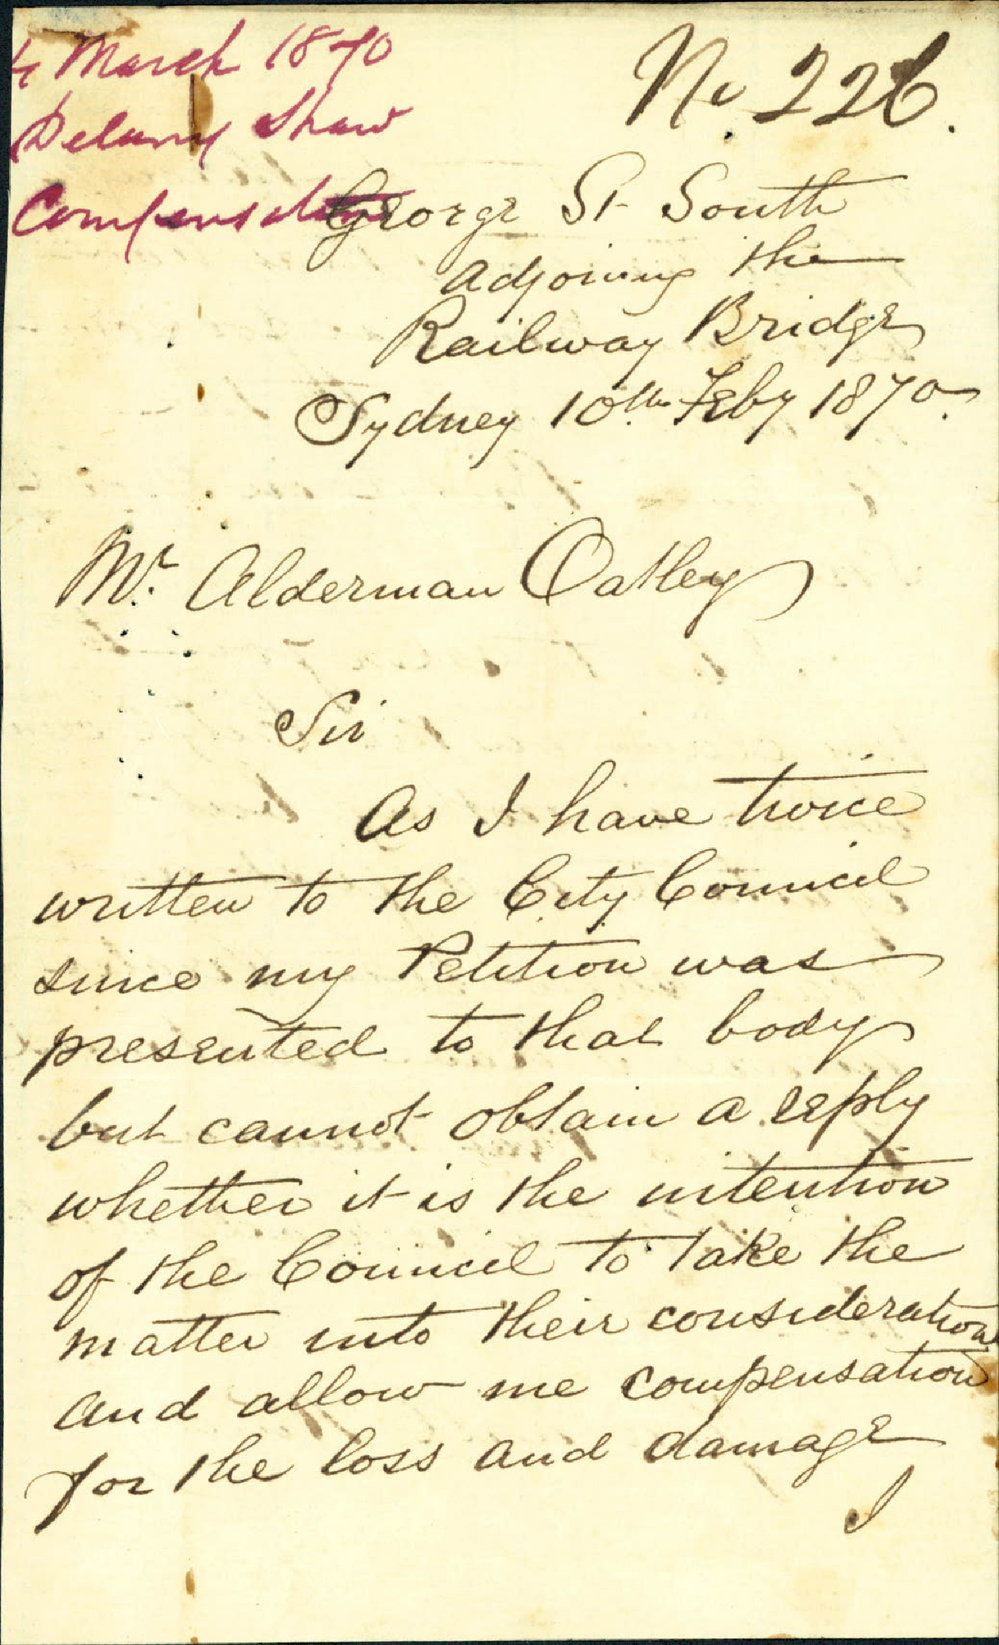 4 March 1870
Delany Shaw
Compensation
No. 226.
George St South
adjoining the
Railway Bridge
Sydney 10th Feby 1870.
Mr. Alderman Oatley
Sir
As I have twice
written to the City Council
since my Petition was
presented to that body
but cannot obtain a reply
whether it is the intention
of the Council to take the
matter into their consideration
and allow me compensation
for the loss and damage
I